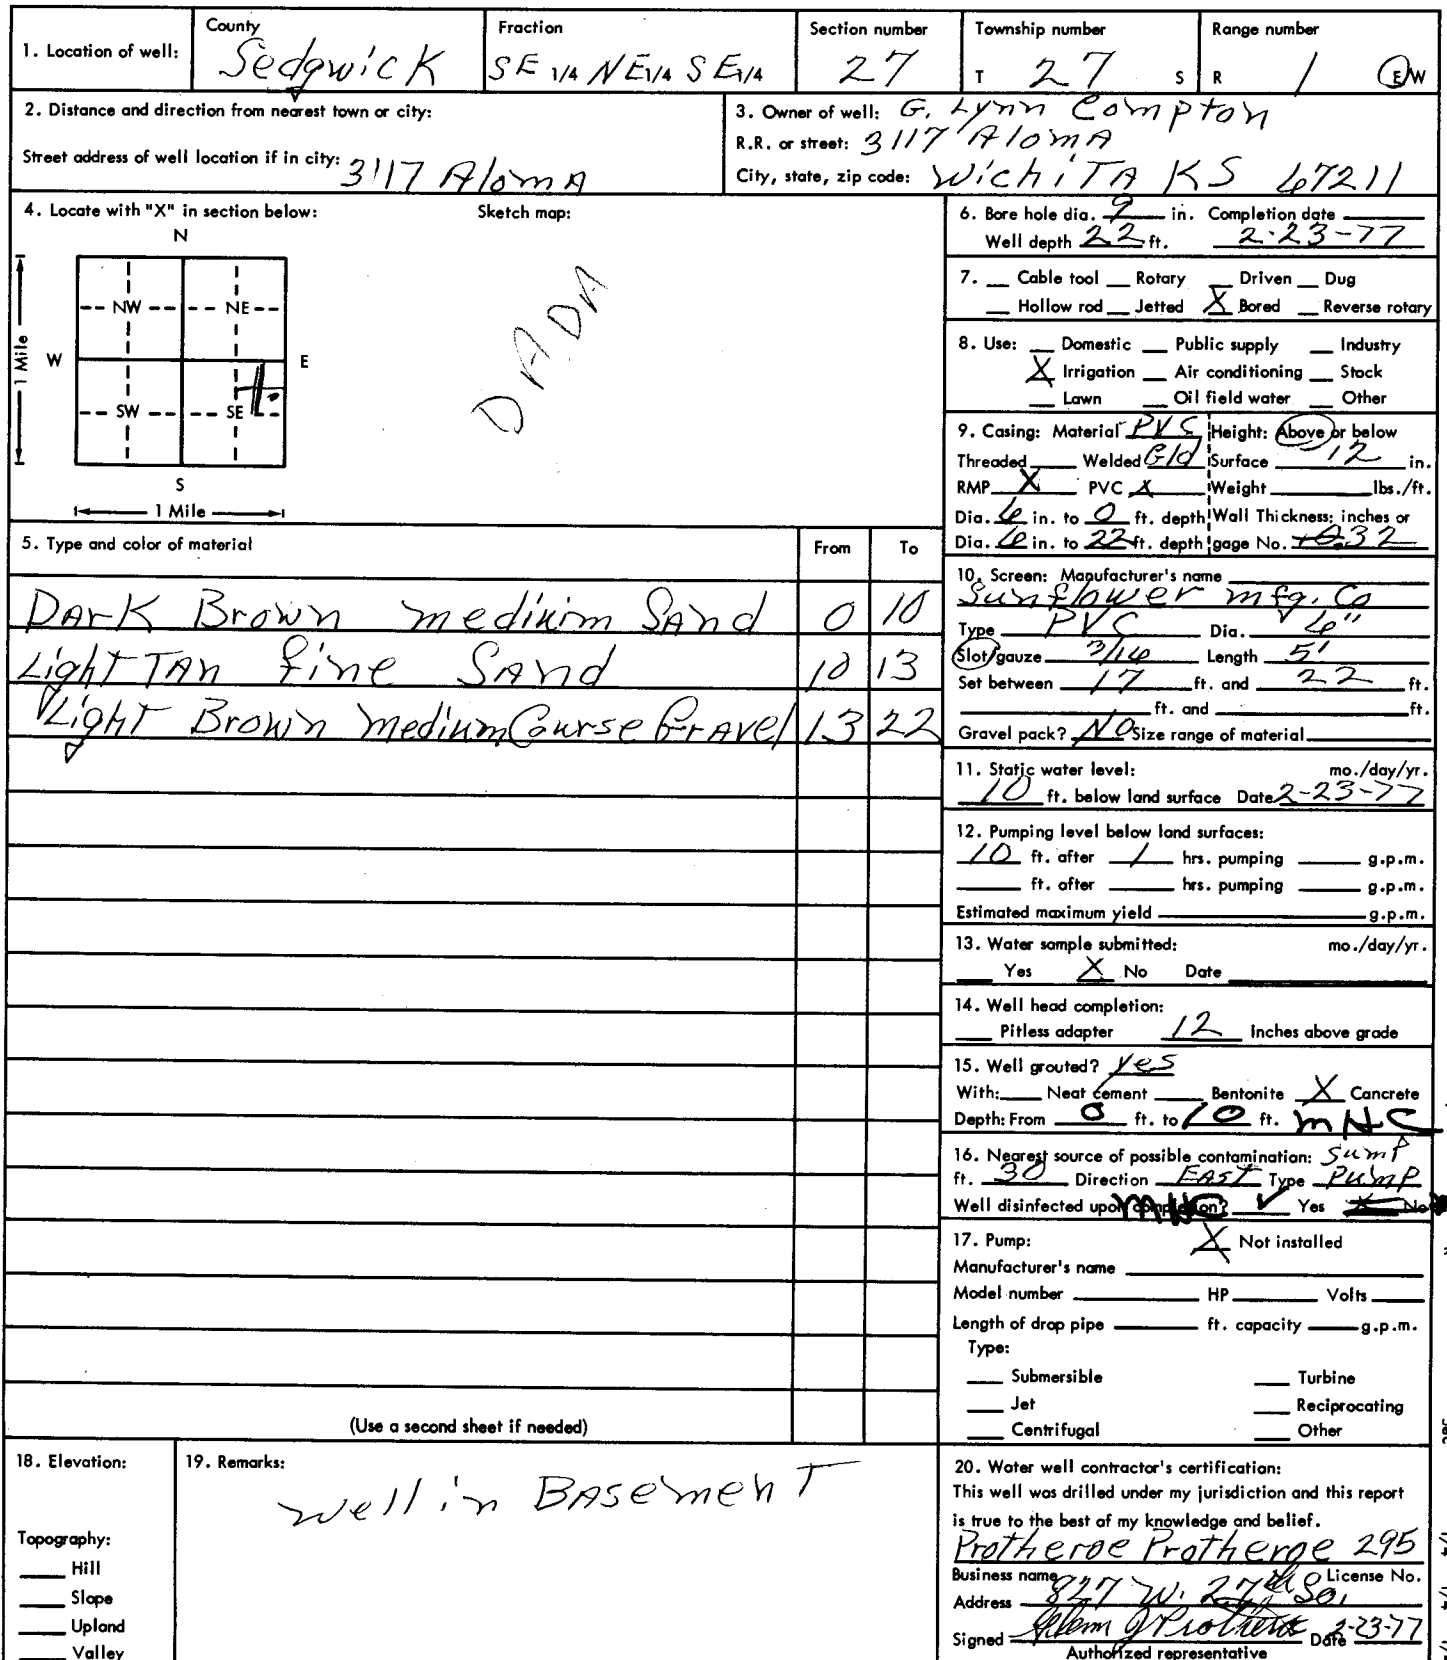 1. Location of well: County Sedgwick Fraction SE 1/4 NE 1/4 SE 1/4 Section number 27 Township number T 27 S Range number R 1 E/W
2. Distance and direction from nearest town or city:
Street address of well location if in city: 3117 Aloma
3. Owner of well: G. Lynn Compton
R.R. or street: 3117 Aloma
City, state, zip code: Wichita KS 67211
4. Locate with "X" in section below: Sketch map:
N
NW NE
W E
SW SE
S
1 Mile
1 Mile
DADA
5. Type and color of material From To
Dark Brown medium Sand 0 10
Light Tan fine Sand 10 13
Light Brown medium Course Gravel 13 22
(Use a second sheet if needed)
6. Bore hole dia. 9 in. Completion date
Well depth 22 ft. 2-23-77
7. __ Cable tool __ Rotary __ Driven __ Dug
__ Hollow rod __ Jetted X Bored __ Reverse rotary
8. Use: __ Domestic __ Public supply __ Industry
X Irrigation __ Air conditioning __ Stock
__ Lawn __ Oil field water __ Other
9. Casing: Material PVC Height: Above or below
Threaded __ Welded Gld Surface 12 in.
RMP X PVC X Weight __ lbs./ft.
Dia. 6 in. to 0 ft. depth Wall Thickness: inches or
Dia. 6 in. to 22 ft. depth gage No. 32
10. Screen: Manufacturer's name
Sunflower mfg. Co
Type PVC Dia. 6"
Slot/gauze 3/16 Length 5'
Set between 17 ft. and 22 ft.
__ ft. and __ ft.
Gravel pack? No Size range of material
11. Static water level: mo./day/yr.
10 ft. below land surface Date 2-23-77
12. Pumping level below land surfaces:
10 ft. after 1 hrs. pumping __ g.p.m.
__ ft. after __ hrs. pumping __ g.p.m.
Estimated maximum yield __ g.p.m.
13. Water sample submitted: mo./day/yr.
__ Yes X No Date
14. Well head completion:
__ Pitless adapter 12 Inches above grade
15. Well grouted? yes
With: __ Neat cement __ Bentonite X Concrete
Depth: From 0 ft. to 10 ft. MHC
16. Nearest source of possible contamination: Sump
ft. 30 Direction East Type Pump
Well disinfected upon completion? MHC ✓ Yes X No
17. Pump: X Not installed
Manufacturer's name
Model number __ HP __ Volts __
Length of drop pipe __ ft. capacity __ g.p.m.
Type:
__ Submersible __ Turbine
__ Jet __ Reciprocating
__ Centrifugal __ Other
18. Elevation:
Topography:
__ Hill
__ Slope
__ Upland
__ Valley
19. Remarks:
Well in Basement
20. Water well contractor's certification:
This well was drilled under my jurisdiction and this report
is true to the best of my knowledge and belief.
Protheroe Protheroe 295
Business name License No.
Address 827 W. 27th So.
Signed Glenn J Protheroe Date 2-23-77
Authorized representative